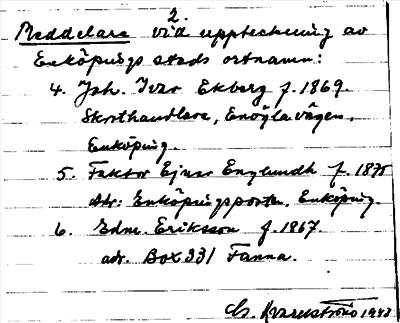 2.
Meddelare vid uppteckning av
Enköpings stads ortnamn:
4. Joh. Ivar Ekberg f. 1869.
Skrothandlare, Enöglavägen.
Enköping.
5. Faktor Ejnar Englundh f. 1875
Adr: Enköpingsposten, Enköping.
6. Edm. Eriksson f. 1867.
adr. Box 331 Fanna.
1943